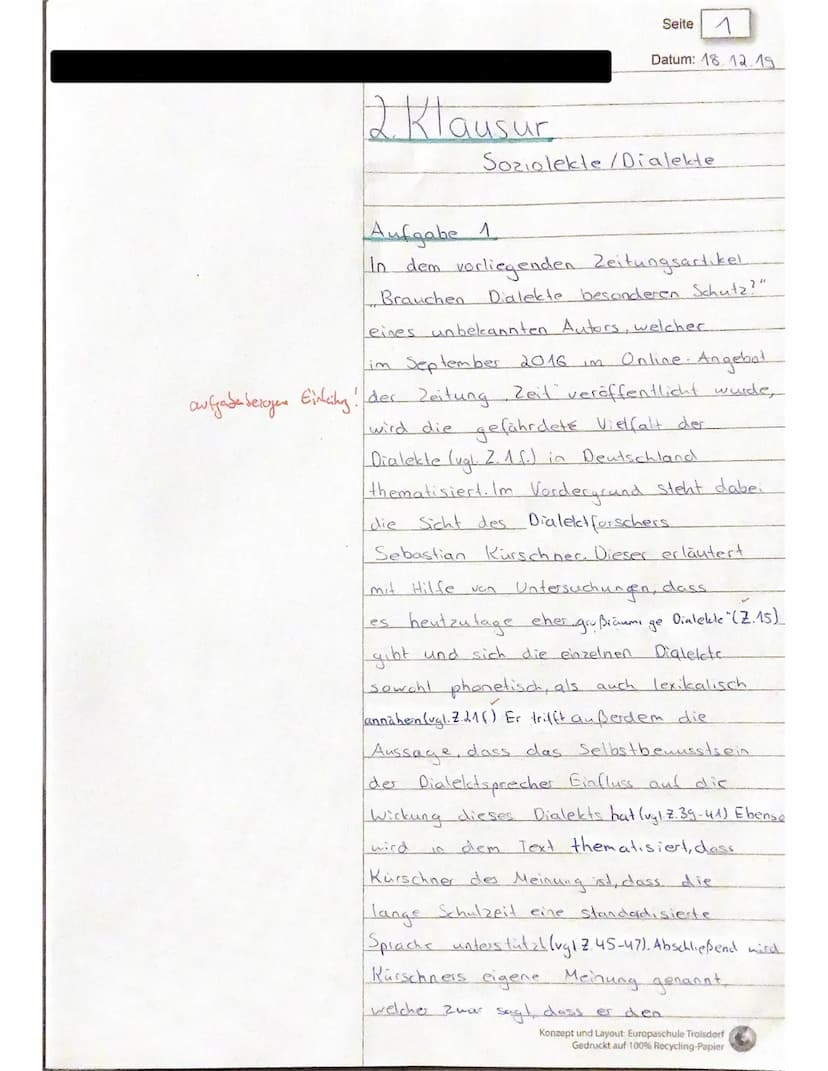 Seite 1
Datum: 18.12.19
2. Klausur
Soziolekte/Dialekte
Aufgabe 1
In dem vorliegenden Zeitungsartikel
„Brauchen Dialekte besonderen Schutz?"
eines unbekannten Autors, welcher
im September 2016 im Online-Angebot
aufgabebezogene Einleitung!
der Zeitung „Zeit" veröffentlicht wurde,
wird die gefährdete Vielfalt der
Dialekte (vgl. Z. 1 f.) in Deutschland
thematisiert. Im Vordergrund steht dabei
die Sicht des Dialektforschers
Sebastian Kürschner. Dieser erläutert
mit Hilfe von Untersuchungen, dass
es heutzutage eher „großräumige Dialekte" (Z. 15)
gibt und sich die einzelnen Dialekte
sowohl phonetisch, als auch lexikalisch
annähern (vgl. Z. 21 f.) Er trifft außerdem die
Aussage, dass das Selbstbewusstsein
der Dialektsprecher Einfluss auf die
Wirkung dieses Dialekts hat (vgl Z. 39-41) Ebenso
wird in dem Text thematisiert, dass
Kürschner der Meinung ist, dass die
lange Schulzeit eine standardisierte
Sprache unterstützt (vgl Z. 45-47). Abschließend wird
Kürschners eigene Meinung genannt,
welcher zwar sagt, dass er den
Konzept und Layout: Europaschule Troisdorf
Gedruckt auf 100% Recycling-Papier